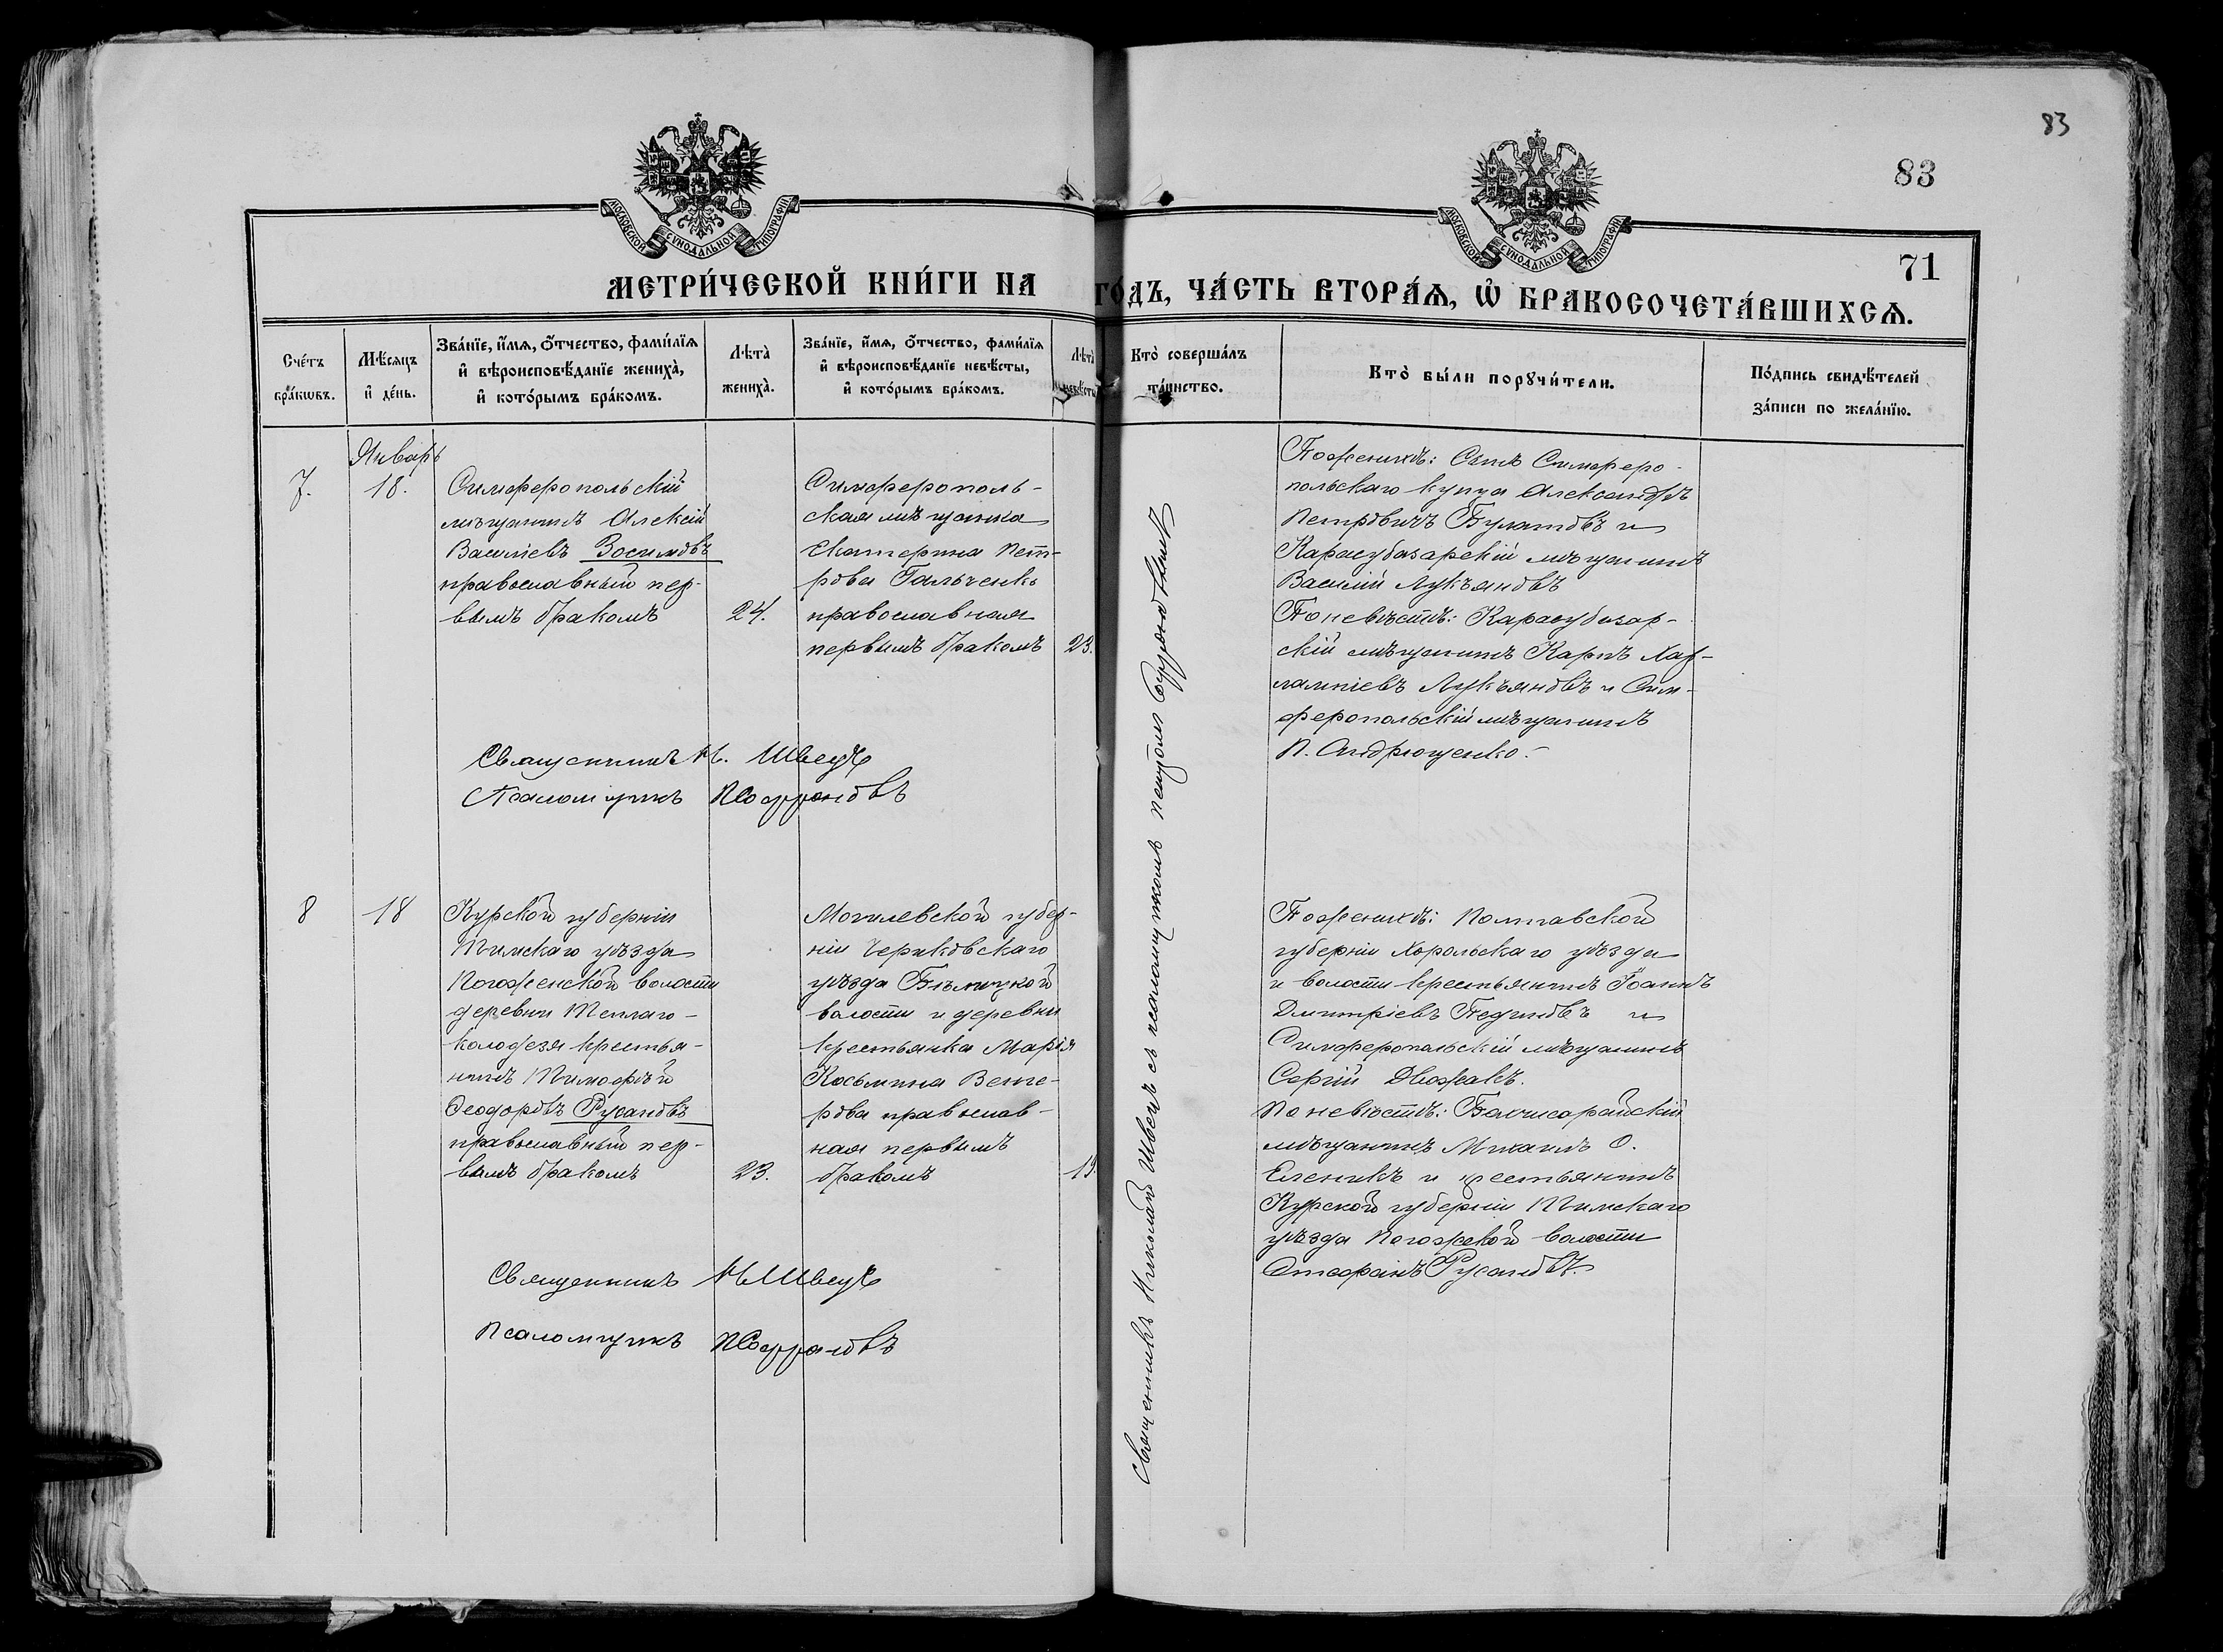 83
83
71
МОСКОВСКОЙ СУНОДАЛЬНОЙ ТИПОГРАФІИ
МОСКОВСКОЙ СУНОДАЛЬНОЙ ТИПОГРАФІИ
МЕТРИ́ЧЕСКОЙ КНИ́ГИ НА ГО́ДЪ, ЧА́СТЬ ВТОРА́Ѧ, Ѡ҆ БРАКОСОЧЕТА́ВШИХСѦ.
Сче́тъ
бра́кѡвъ.
Мѣ́сяцъ
и҆ де́нь.
Зва́нїе, и҆́мѧ, ѻ҆́тчество, фами́лїѧ
и҆ вѣроисповѣ́данїе жениха̀,
и҆ кото́рымъ бра́комъ.
Лѣта̀
жениха̀.
Зва́нїе, и҆́мѧ, ѻ҆́тчество, фами́лїѧ
и҆ вѣроисповѣ́данїе невѣ́сты,
и҆ кото́рымъ бра́комъ.
Лѣта̀
невѣ́сты
Кто̀ соверша́лъ
та́инство.
Кто̀ бы́ли порꙋчи́тели.
По́дпись свидѣ́телей
за́писи по жела́нїю.
Январь
7.
18.
Симферопольскій
мѣщанинъ Алексій
Василіевъ Зосимовъ
православный пер-
вымъ бракомъ
24.
Симферополь-
ская мѣщанка
Екатерина Пет-
рова Гальченко
православная
первымъ бракомъ
23.
Священникъ Н. Швецъ
Псаломщикъ П Софроновъ
По женихѣ: Сынъ Симферо-
польскаго купца Александръ
Петровичъ Булатовъ и
Карасубазарскій мѣщанинъ
Василій Лукьяновъ
По невѣстѣ: Карасубазар-
скій мѣщанинъ Карпъ Хар-
лампіевъ Лукьяновъ и Сим-
феропольскій мѣщанинъ
П. Андрющенко.
Священникъ Николай Швецъ съ псаломщикомъ Софроновымъ
8
18
Курской губерніи
Тимскаго уѣзда
Погоженской волости
деревни Теплаго-
колодезя крестья-
нинъ Тимофей
Ѳеодоровъ Русановъ
православный пер-
вымъ бракомъ
23.
Могилевской губер-
ніи Чериковскаго
уѣзда
волости и деревни
крестьянка Марія
Косьмина Вете-
рова православ-
ная первымъ
бракомъ
19.
Священникъ Н Швецъ
Псаломщикъ П Софроновъ
По женихѣ: Полтавской
губерніи Хорольскаго уѣзда
и волости крестьянинъ Іоаннъ
Димитріевъ и
Симферопольскій мѣщанинъ
Сергій
По невѣстѣ: Бахчисарайскій
мѣщанинъ Михаилъ О.
и крестьянинъ
Курской губерніи Тимскаго
уѣзда Погожской волости
Русановъ.